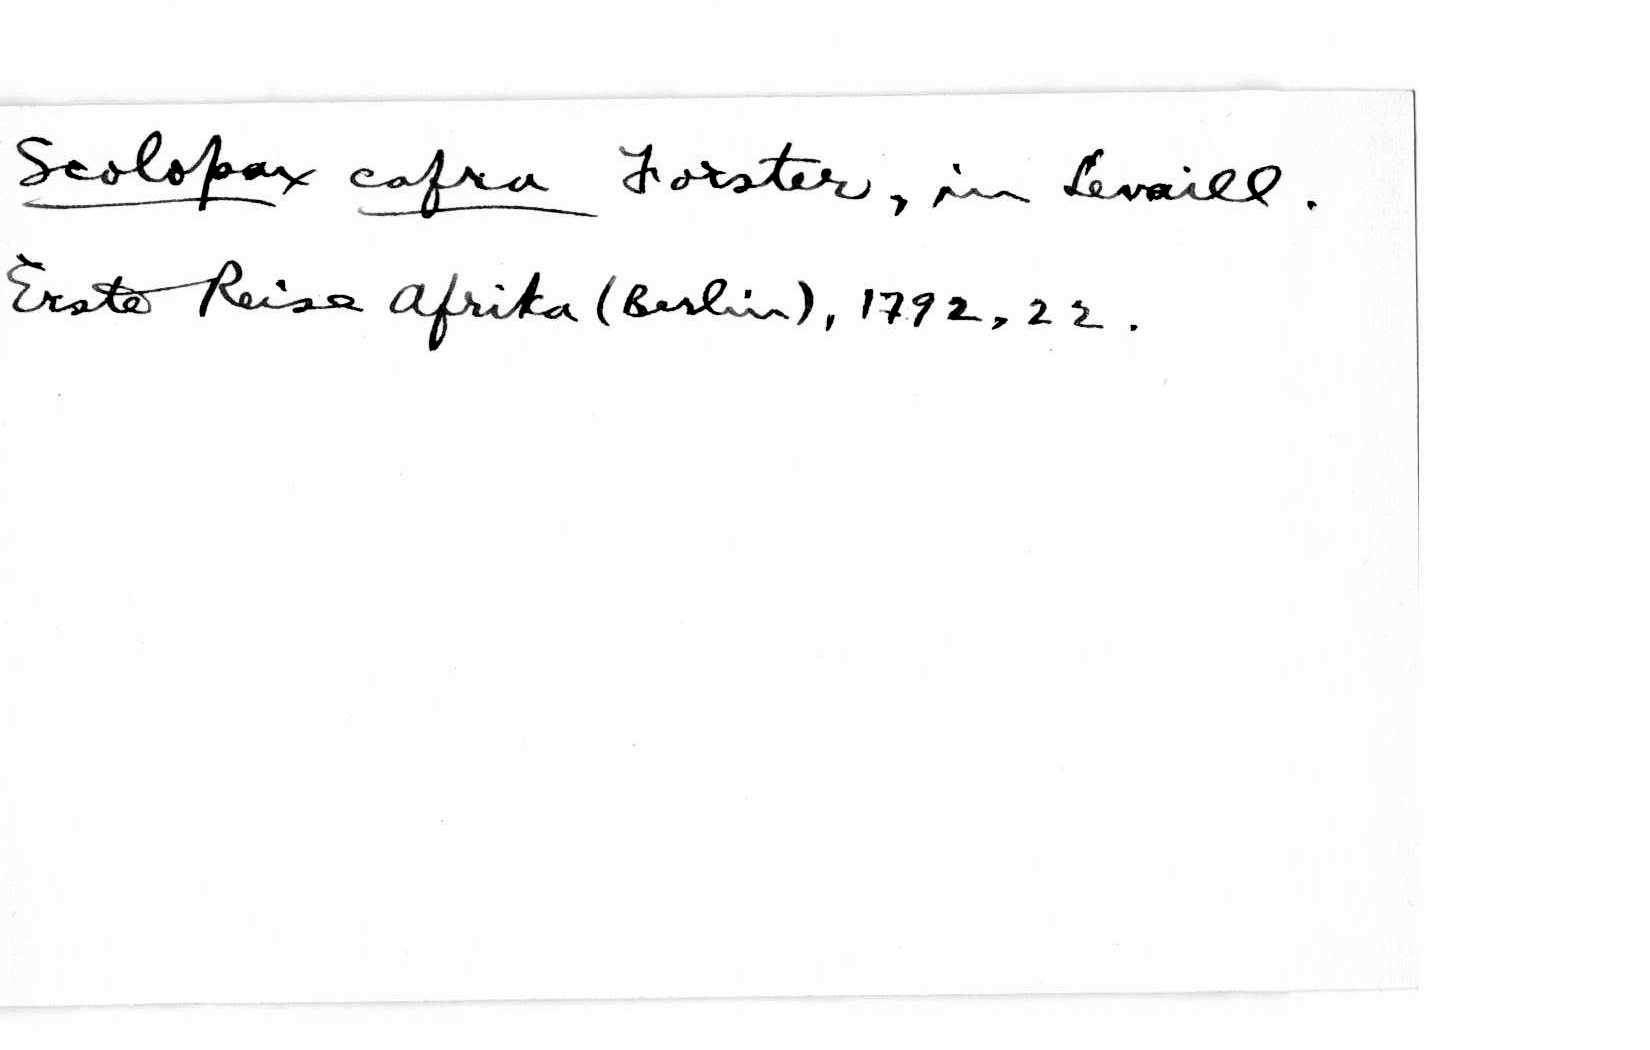 Scolopax cafra Forster, in Levaill.
Erste Reise Afrika (Berlin), 1792, 22.